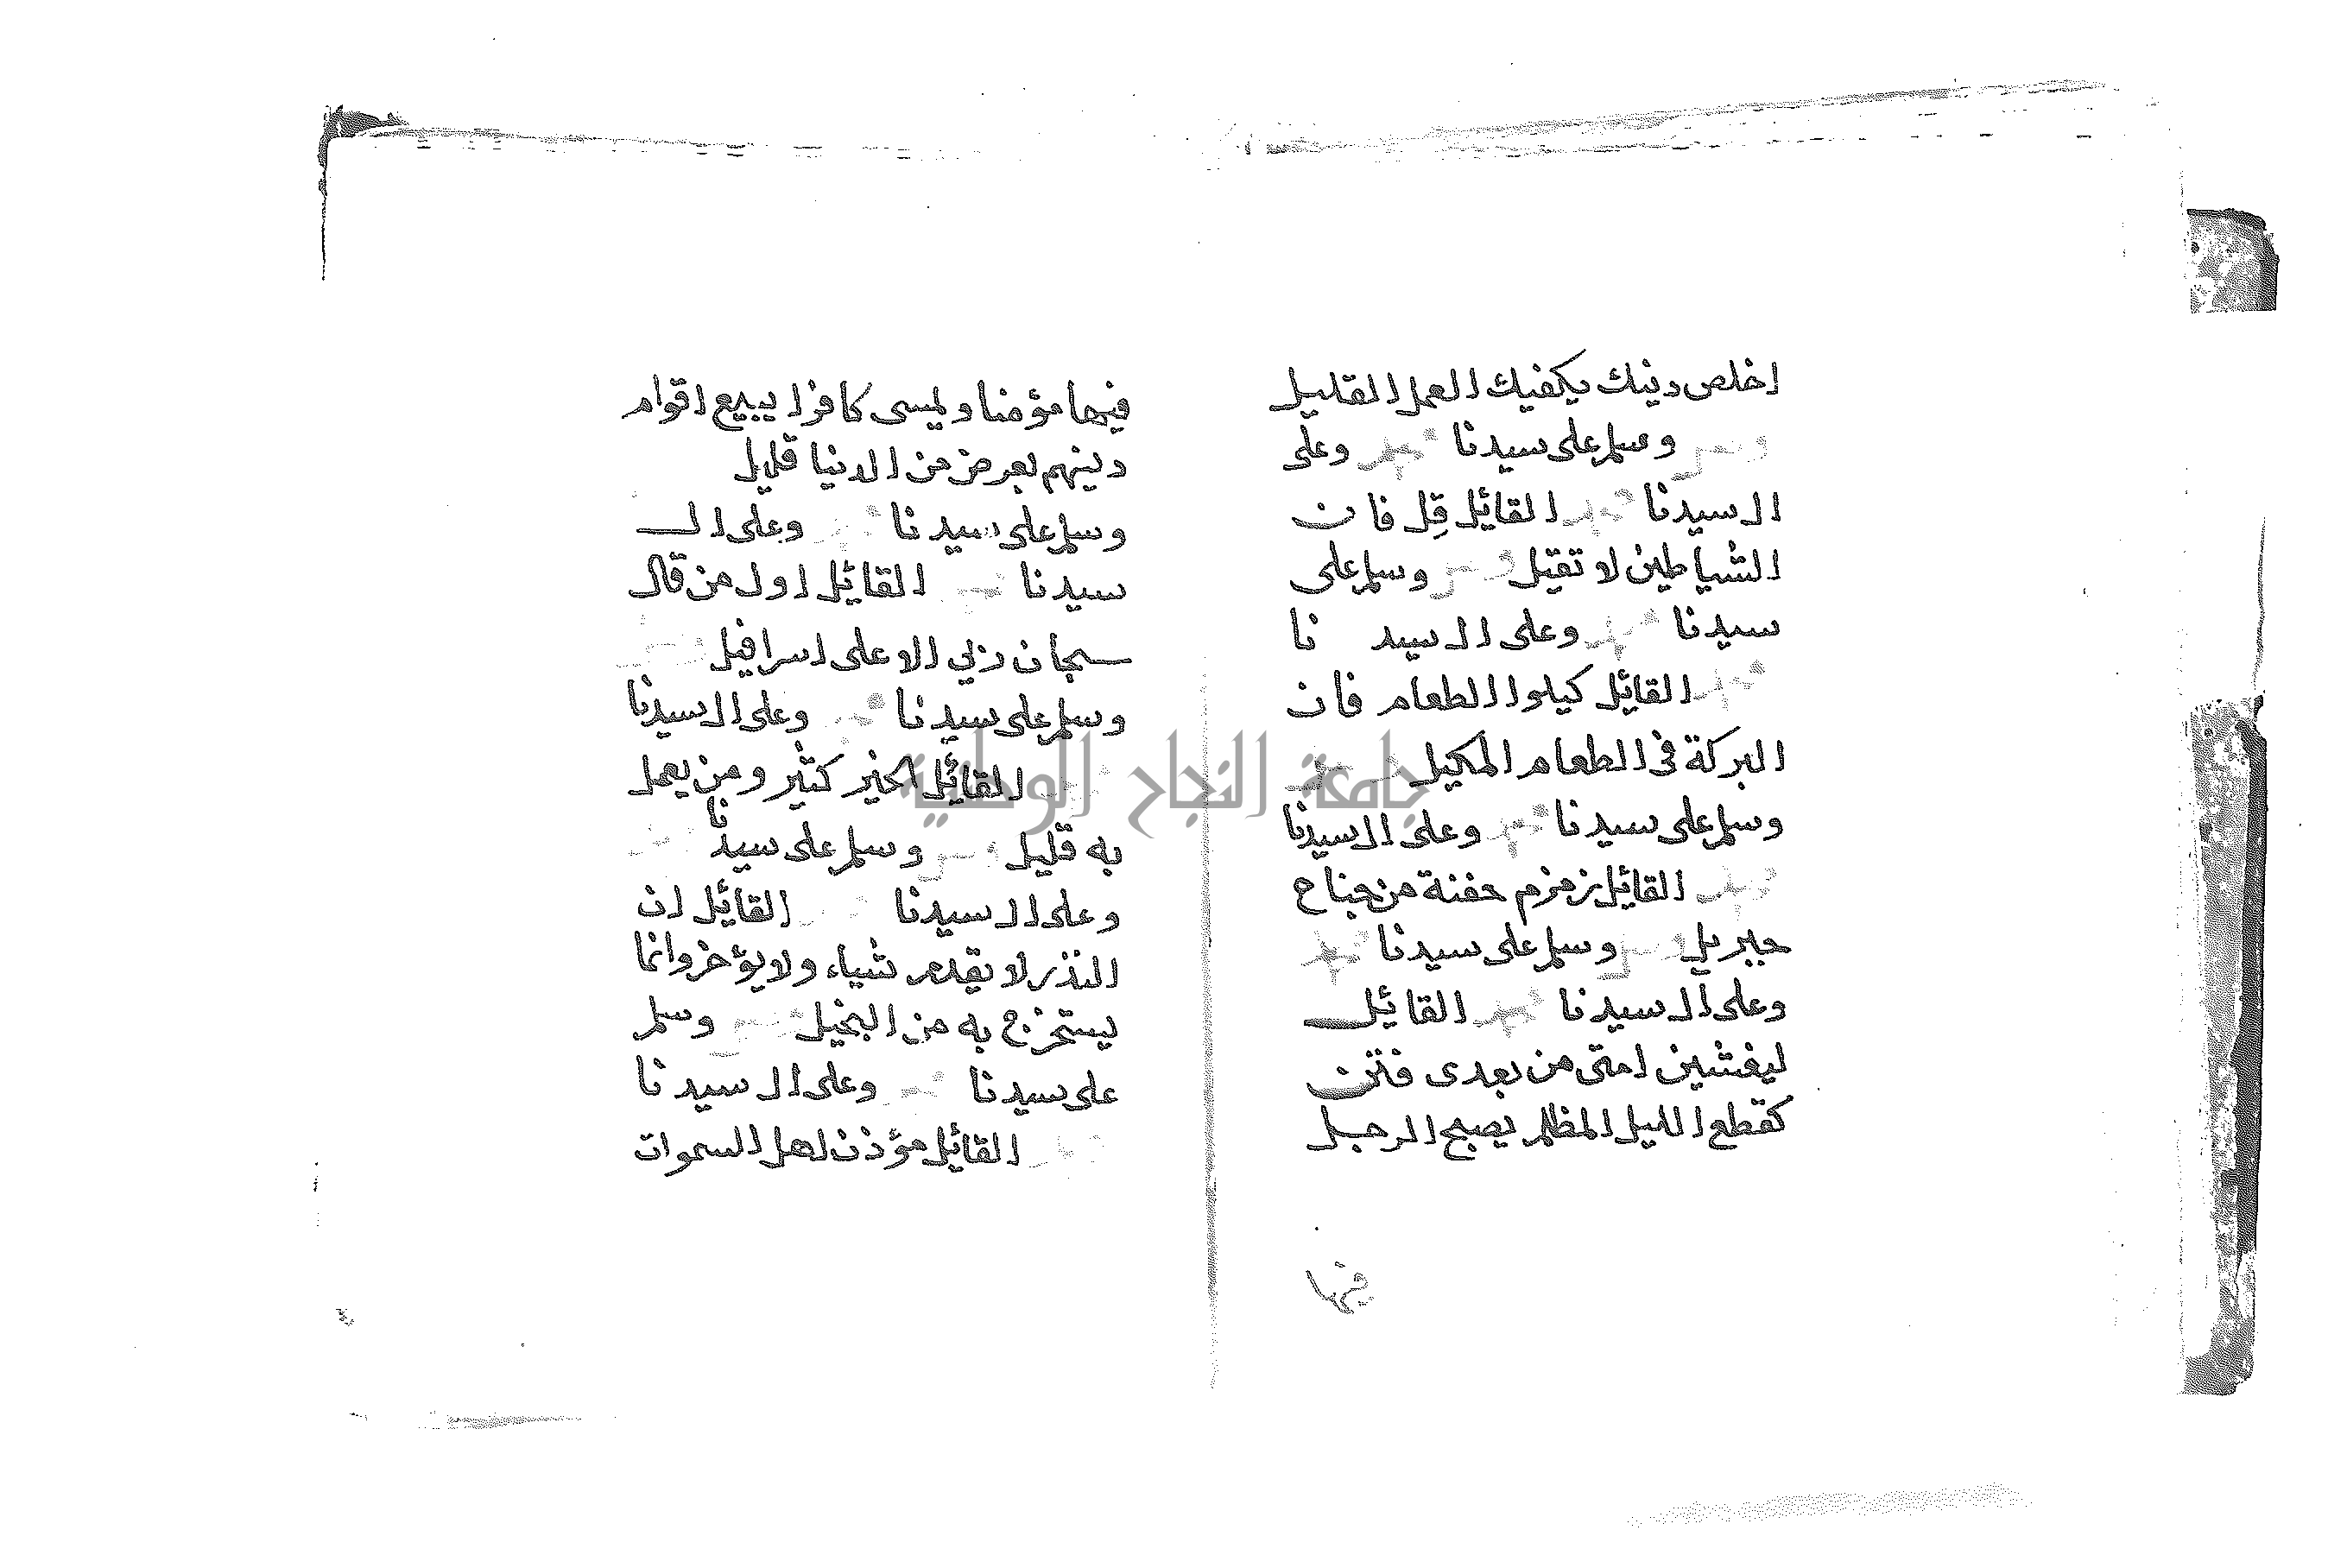 اخلص دينك يكفيك العمل القليل
وسلم على سيدنا محمد وعلى
ال سيدنا محمد القائل قل فان
الشياطين لا تقيل وسلم على
سيدنا محمد وعلى ال سيد نا
محمد القائل كيلوا الطعام فان
البركة فى الطعام المكيل
وسلم على سيدنا محمد وعلى ال سيدنا
محمد القائل زمزم حفنة من جناح
جبريل وسلم على سيدنا محمد
وعلى ال سيدنا محمد القائل
ليغشين امتى من بعدى فتن
كقطع الليل المظلم يصبح الرجل
فيها
فيها مؤمنا ويمسى كافرا يبيع اقوام
دينهم بعرض من الدنيا قليل
وسلم على سيدنا وعلى ال
سيدنا القائل اول من قال
سبحان ربي الاعلى اسرافيل
وسلم على سيدنا وعلى ال سيدنا
القائل الخير كثير ومن يعمل
به قليل وسلم على سيدنا
وعلى ال سيدنا القائل ان
النذر لا يقدم شياء ولا يؤخر وانما
يستخرج به من البخيل وسلم
على سيدنا وعلى ال سيدنا
القائل مؤذن اهل السموات
جامعة النجاح الوطنية